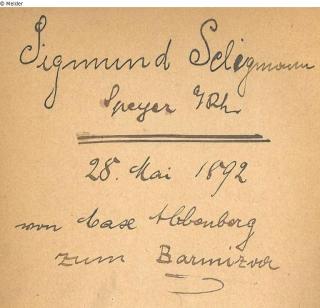 © Melder
Sigmund Seligmann
Speyer a/Rh
28. Mai 1892
von Max Abbenberg
zum Barmizva